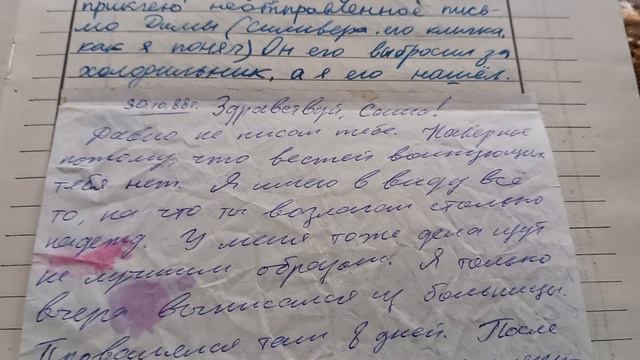 приклею неотправленное пись-
мо Димы (Сильвера. его кличка,
как я понял) Он его выбросил за
холодильник, а я его нашёл.
30.10.88г. Здравствуй, Саша!
Давно не писал тебе. Наверное
потому, что вестей волнующих
тебя нет. Я имею в виду всё
то, на что ты возлагал столько
надежд. У меня тоже дела идут
не лучшим образом. Я только
вчера выписался из больницы.
Провалялся там 8 дней. После